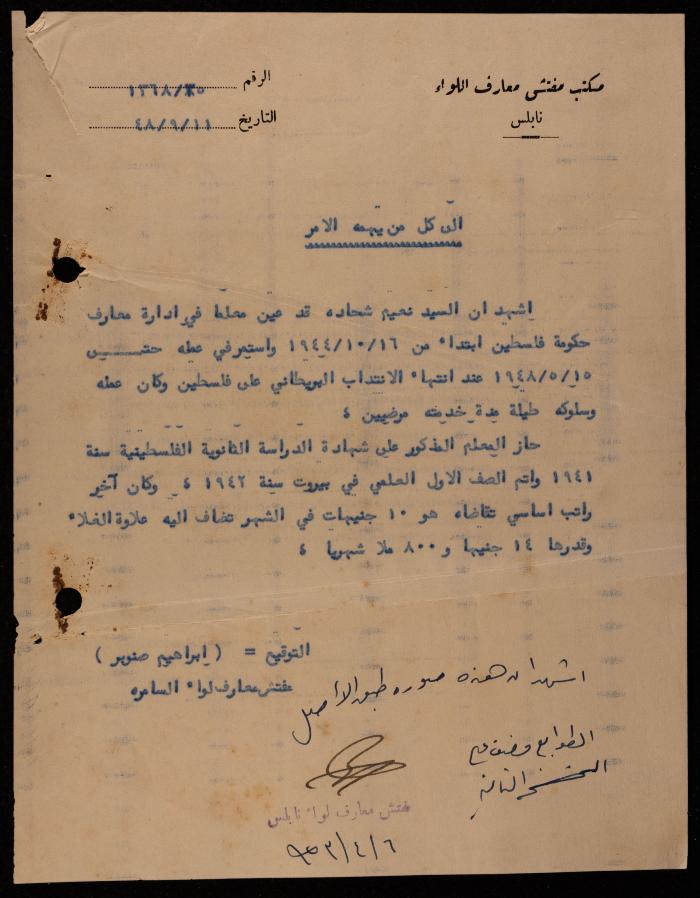 مكتب مفتش معارف اللواء
نابلس
الرقم ١٣٦٨/٣٥
التاريخ ٤٨/٩/١١
الى كل من يهمه الامر
اشهد ان السيد نعيم شحاده قد عين معلما في ادارة معارف
حكومة فلسطين ابتداء من ١٩٤٤/١٠/١٦ واستمر في عمله حتى
١٩٤٨/٥/١٥ عند انتهاء الانتداب البريطاني على فلسطين وكان عمله
وسلوكه طيلة مدة خدمته مرضيين ٤
حاز المعلم المذكور على شهادة الدراسة الثانوية الفلسطينية سنة
١٩٤١ واتم الصف الاول العلمي في بيروت سنة ١٩٤٢ ٤ وكان آخر
راتب اساسي تقاضاه هو ١٠ جنيهات في الشهر تضاف اليه علاوة الغلاء
وقدرها ١٤ جنيها و ٨٠٠ ملا شهريا ٤
التوقيع = ( ابراهيم صنوبر )
مفتش معارف لواء السامره
اشهد ان هذه صوره طبق الاصل
الطوابع وضعت على
النسخة الثانية
مفتش معارف لواء نابلس
٩٥٣/٤/٦